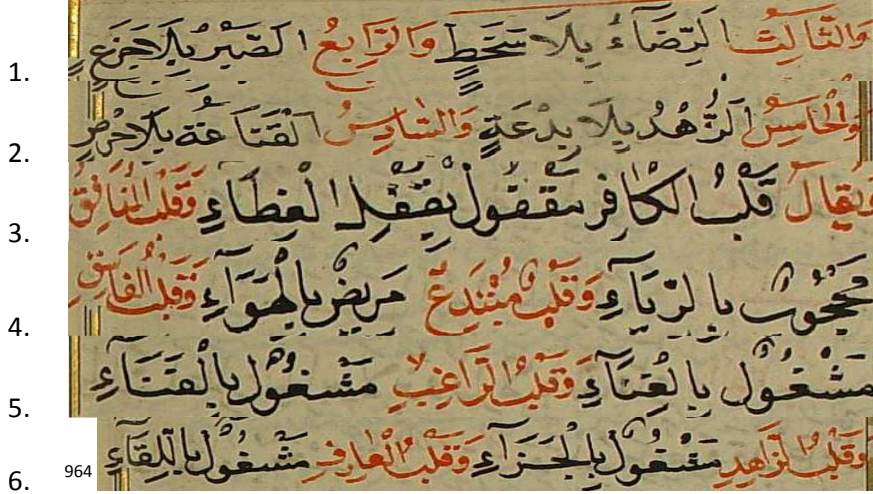 1. وَالثَّالِثُ الرِّضَاءُ بِلَا سَخَطٍ وَالرَّابِعُ الصَّبْرُ بِلَا جَزَعٍ
2. وَالْخَامِسُ الزُّهْدُ بِلَا بِدْعَةٍ وَالسَّادِسُ الْقَنَاعَةُ بِلَا حِرْصٍ
3. وَيُقَالُ قَلْبُ الْكَافِرِ مَقْفُولٌ بِقِفْلِ الْغِطَاءِ وَقَلْبُ الْمُنَافِقِ
4. مَحْجُوبٌ بِالرِّيَآءِ وَقَلْبُ مُبْتَدِعٍ مَرِيضٌ بِالْهَوَآءِ وَقَلْبُ الْفَاسِقِ
5. مَشْغُولٌ بِالْعَنَآءِ وَقَلْبُ الرَّاغِبِ مَشْغُولٌ بِالْفَنَآءِ
6. 964 وَقَلْبُ الزَّاهِدِ مَشْغُولٌ بِالْجَزَآءِ وَقَلْبُ الْعَارِفِ مَشْغُولٌ بِاللِّقَآءِ